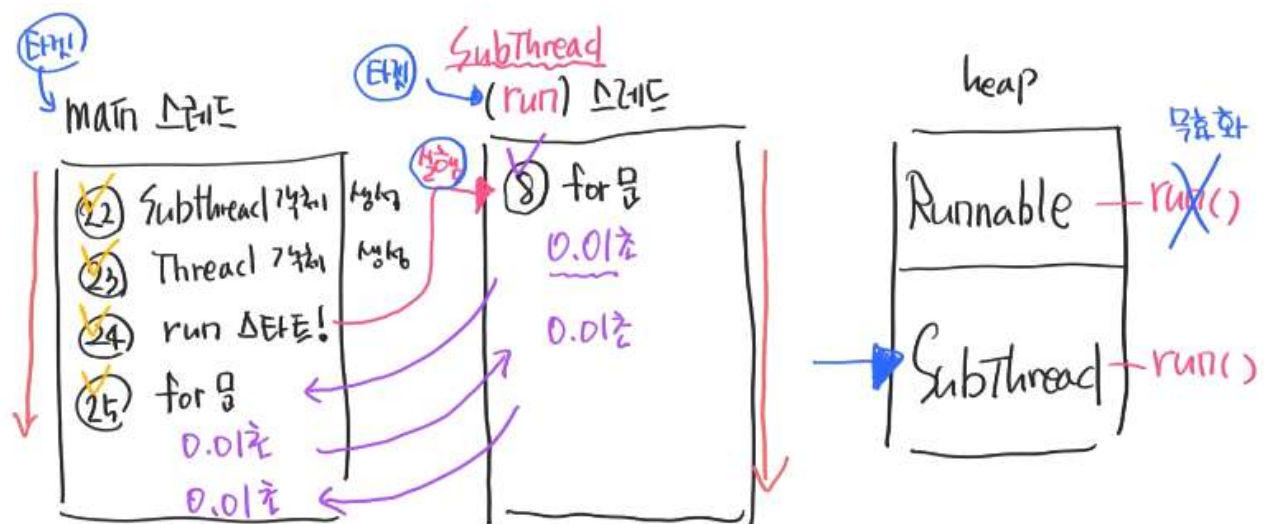 타겟
main 스레드
22 Subthread 객체 생성
23 Thread 객체 생성
24 run 스타트!
25 for문
0.01초
0.01초
실행
타겟
SubThread
(run) 스레드
8 for문
0.01초
0.01초
heap
무효화
Runnable run()
SubThread run()